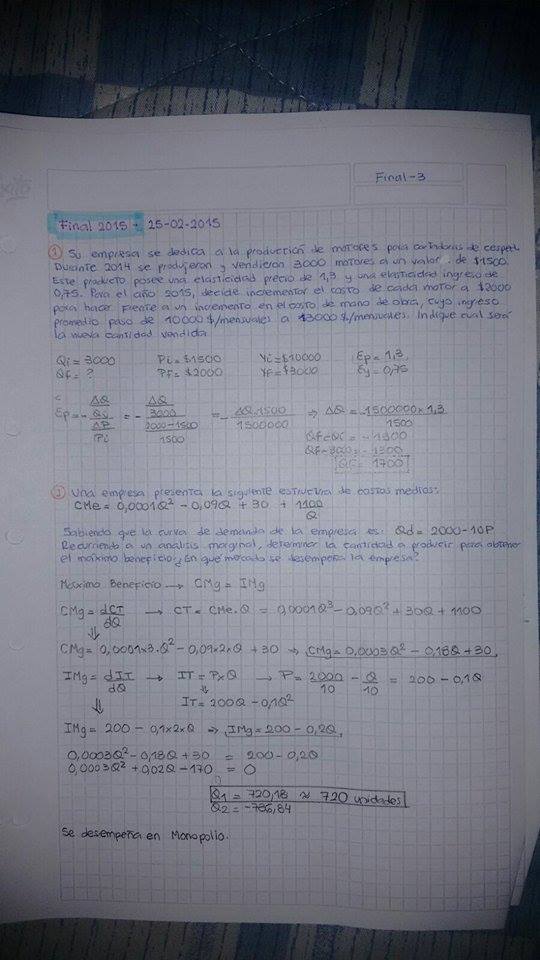 Final-3
Final 2015 - 25-02-2015
① Su empresa se dedica a la producción de motores para cortadoras de cesped.
Durante 2014 se produjeron y vendieron 3000 motores a un valor de $1500.
Este producto posee una elasticidad precio de 1,3 y una elasticidad ingreso de
0,75. Para el año 2015, decide incrementar el costo de cada motor a $2000
para hacer frente a un incremento en el costo de mano de obra, cuyo ingreso
promedio paso de 10000 $/mensuales a 13000 $/mensuales. Indique cual será
la nueva cantidad vendida.
Qi = 3000 Pi = $1500 Yi = $10000 Ep = 1,3
Qf = ? Pf = $2000 Yf = $3000 Ey = 0,75
Ep = - ΔQ/Qi / ΔP/Pi = - ΔQ/3000 / 2000-1500/1500 = - ΔQ·1500/1500000 ⇒ ΔQ = -1500000×1,3/1500
Qf-Qi = -1300
Qf-3000 = -1300
Qf = 1700
② Una empresa presenta la siguiente estructura de costos medios:
CMe = 0,0001Q² - 0,09Q + 30 + 1100/Q
Sabiendo que la curva de demanda de la empresa es: Qd = 2000-10P
Recurriendo a un analisis marginal, determinar la cantidad a producir para obtener
el máximo beneficio ¿En qué mercado se desempeña la empresa?
Máximo Beneficio → CMg = IMg
CMg = dCT/dQ → CT = CMe.Q = 0,0001Q³ - 0,09Q² + 30Q + 1100
CMg = 0,0001×3.Q² - 0,09×2×Q + 30 ⇒ CMg = 0,0003Q² - 0,18Q + 30
IMg = dIT/dQ → IT = P×Q → P = 2000/10 - Q/10 = 200 - 0,1Q
IT = 200Q - 0,1Q²
IMg = 200 - 0,1×2×Q ⇒ IMg = 200 - 0,2Q
0,0003Q² - 0,18Q + 30 = 200 - 0,2Q
0,0003Q² + 0,02Q - 170 = 0
Q1 = 720,18 ≈ 720 unidades
Q2 = -786,84
Se desempeña en Monopolio.